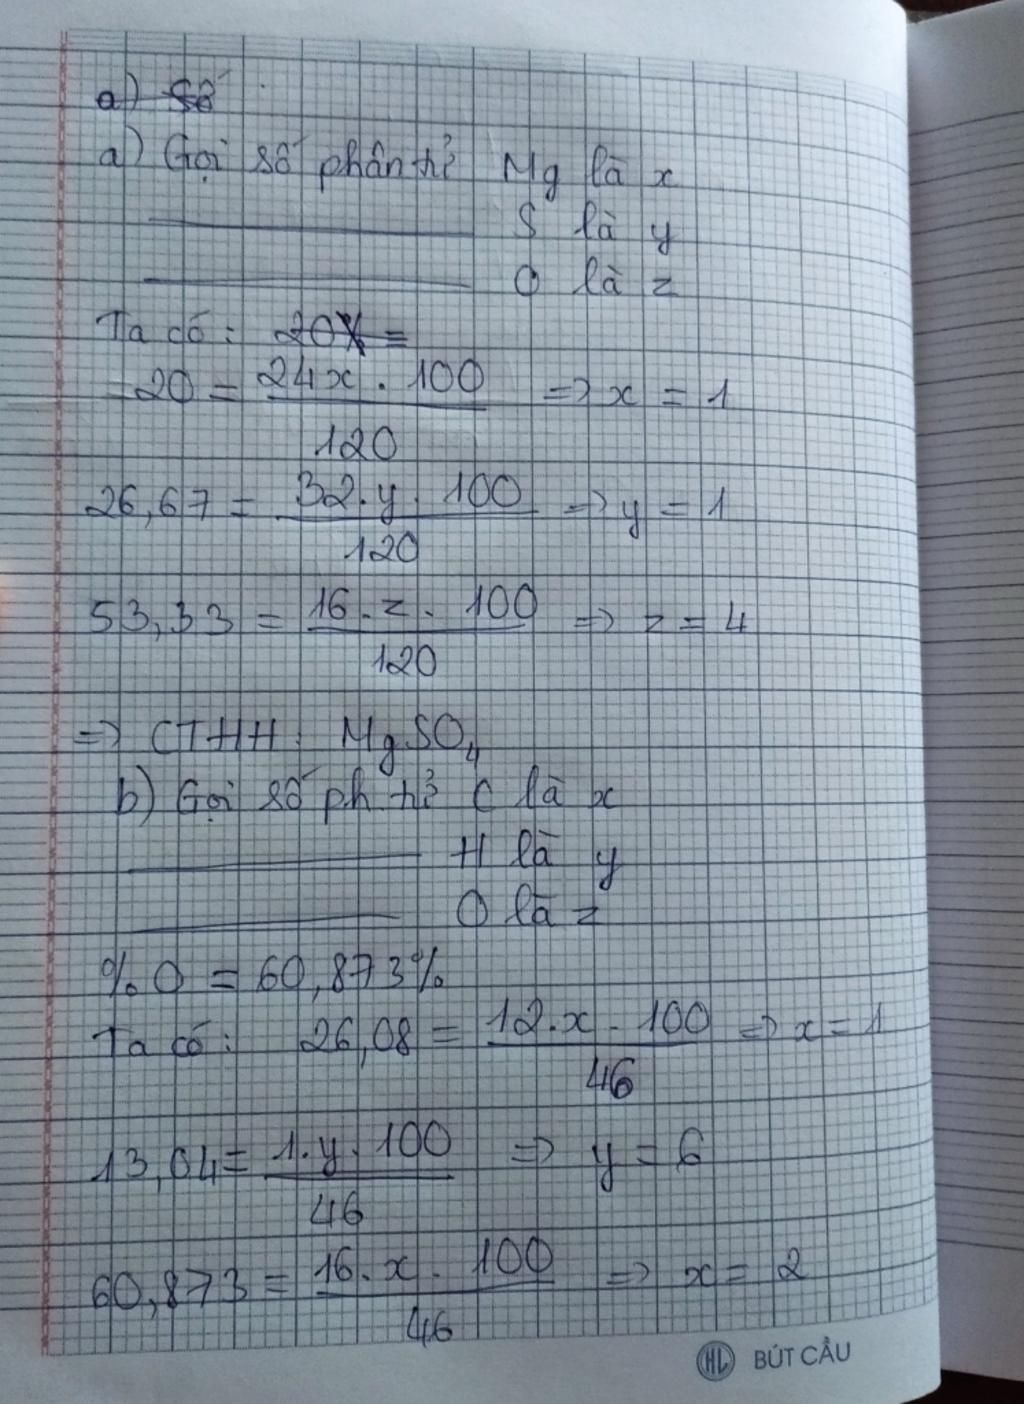 a) Số
a) Gọi số phân tử Mg là x
S là y
O là z
Ta có: 20x =
20 = 24x . 100 / 120 => x = 1
26,67 = 32.y.100 / 120 => y = 1
53,33 = 16.z.100 / 120 => z = 4
=> CTHH: MgSO₄
b) Gọi số ph.tử C là x
H là y
O là z
%O = 60,873%
Ta có: 26,08 = 12.x.100 / 46 => x = 1
13,04 = 1.y.100 / 46 => y = 6
60,873 = 16.x.100 / 46 => x = 2
HL BÚT CẦU